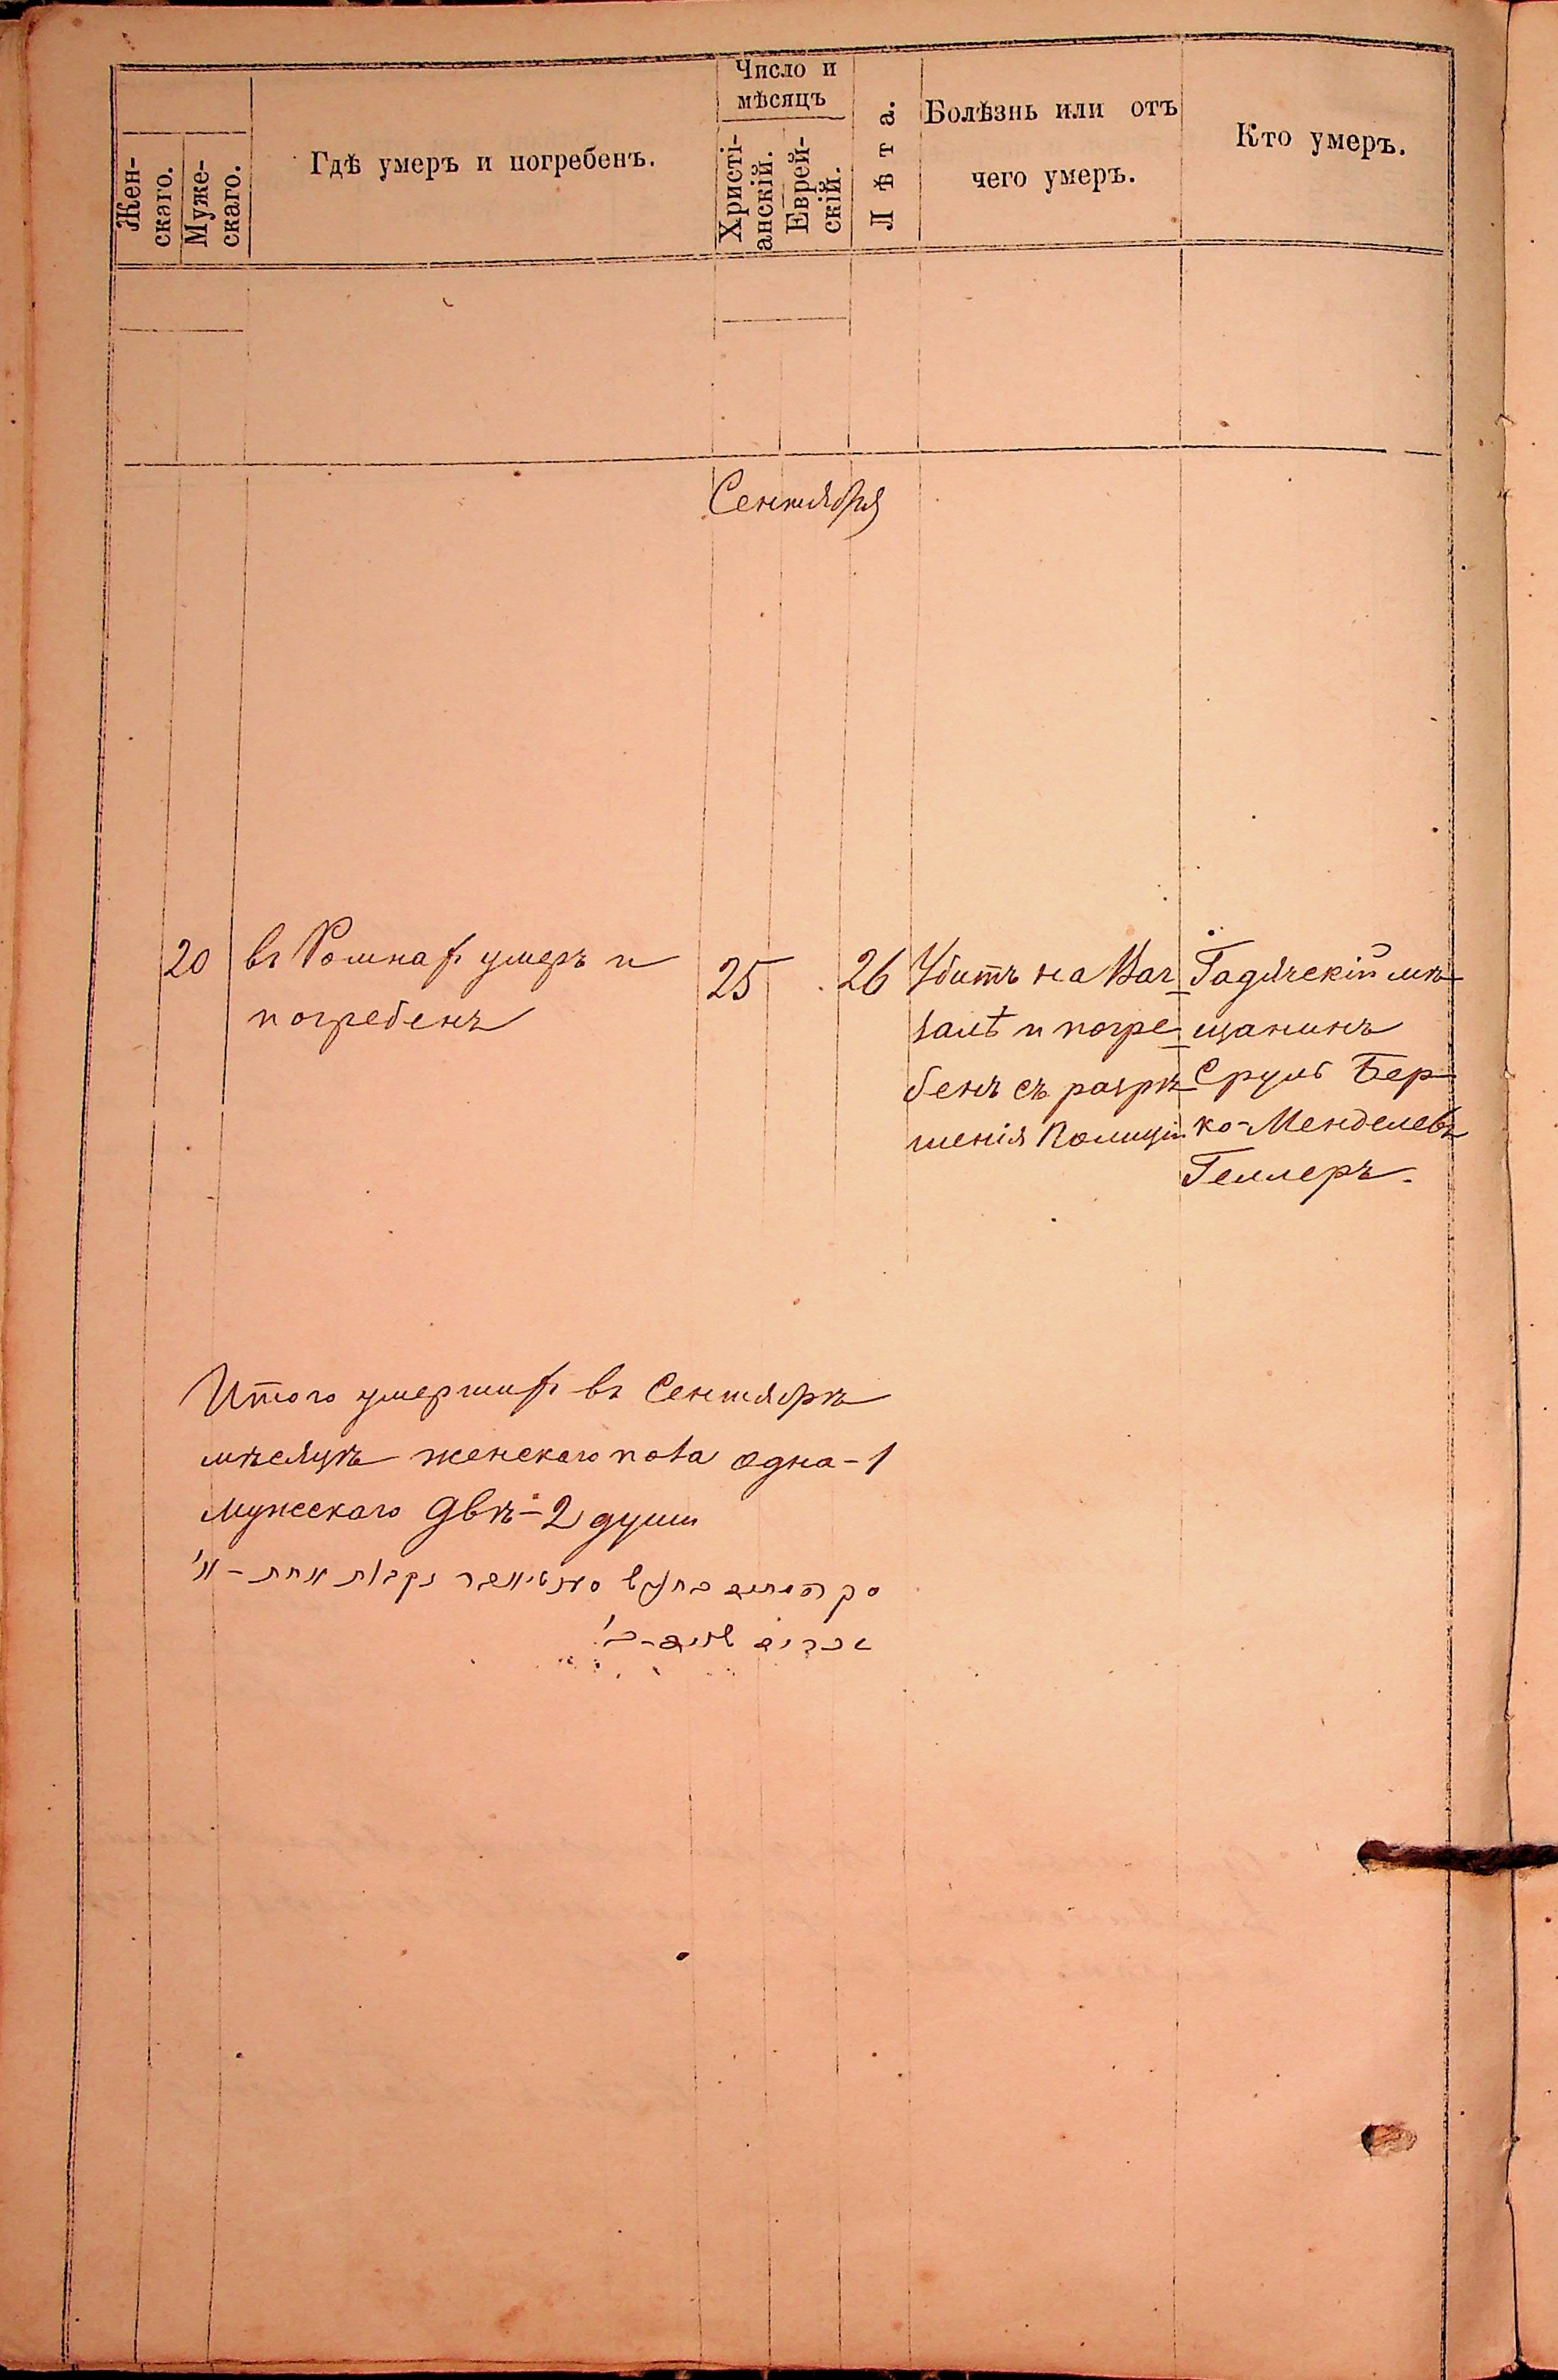 Жен-
скаго.
Муже-
скаго.
Гдѣ умеръ и погребенъ.
Число и
мѣсяцъ
Христі-
анскій.
Еврей-
скій.
Лѣта.
Болѣзнь или отъ
чего умеръ.
Кто умеръ.
Сентября
20
въ Ромнах умеръ и
погребенъ
25
26
Убитъ на Вог
залѣ и погре
бенъ съ разрѣ
шенія Полиціи
Гадячскій мѣ
щанинъ
Сруль Бер
ко-Менделевъ
Геллеръ.
Итого умерших въ Сентябрѣ
мѣсяцѣ женскаго пола одна - 1
Мужскаго двѣ - 2 души
ס״ק המתים בחדש סעפטאבער נקבות אחת - א׳
זכרים שנים - ב׳